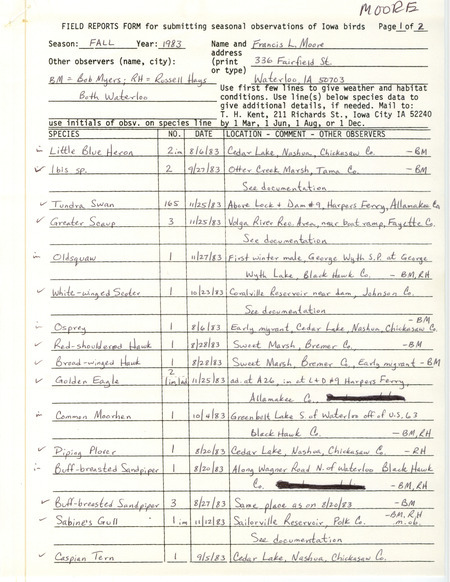 MOORE
FIELD REPORTS FORM for submitting seasonal observations of Iowa birds Page 1 of 2
Season: FALL Year: 1983 Name and Francis L. Moore
address
Other observers (name, city): (print 336 Fairfield St.
or type)
BM = Bob Myers; RH = Russell Hays Waterloo, IA 50703
Both Waterloo Use first few lines to give weather and habitat
conditions. Use line(s) below species data to
give additional details, if needed. Mail to:
T. H. Kent, 211 Richards St., Iowa City IA 52240
use initials of obsv. on species line by 1 Mar, 1 Jun, 1 Aug, or 1 Dec.
SPECIES NO. DATE LOCATION - COMMENT - OTHER OBSERVERS
Little Blue Heron 2im 8/6/83 Cedar Lake, Nashua, Chickasaw Co. - BM
✓ Ibis sp. 2 9/27/83 Otter Creek Marsh, Tama Co. - BM
See documentation
✓ Tundra Swan 165 11/25/83 Above Lock & Dam #9, Harpers Ferry, Allamakee Co
✓ Greater Scaup 3 11/25/83 Volga River Rec. Area, near boat ramp, Fayette Co.
See documentation
Oldsquaw 1 11/27/83 First winter male, George Wyth S.P. at George
Wyth Lake, Black Hawk Co. - BM, RH
✓ White-winged Scoter 1 10/23/83 Coralville Reservoir near dam, Johnson Co.
See documentation
- BM
Osprey 1 8/6/83 Early migrant, Cedar Lake, Nashua, Chickasaw Co.
✓ Red-shouldered Hawk 1 8/28/83 Sweet Marsh, Bremer Co. - BM
✓ Broad-winged Hawk 1 8/28/83 Sweet Marsh, Bremer Co, Early migrant - BM
2
✓ Golden Eagle 1im 1ad 11/25/83 ad. at A26, im at L+D #9 Harpers Ferry,
Allamakee Co.
Common Moorhen 1 10/4/83 Greenbelt Lake S. of Waterloo off of U.S. 63
Black Hawk Co. - BM, RH
✓ Piping Plover 1 8/20/83 Cedar Lake, Nashua, Chickasaw Co. - RH
Buff-breasted Sandpiper 1 8/20/83 Along Wagner Road N. of Waterloo Black Hawk
Co. - BM, RH
✓ Buff-breasted Sandpiper 3 8/27/83 Same place as on 8/20/83 - BM
✓ Sabine's Gull 1 im 11/12/83 Sailorville Reservoir, Polk Co. - BM, RH m.ob.
See documentation
✓ Caspian Tern 1 9/5/83 Cedar Lake, Nashua, Chickasaw Co.